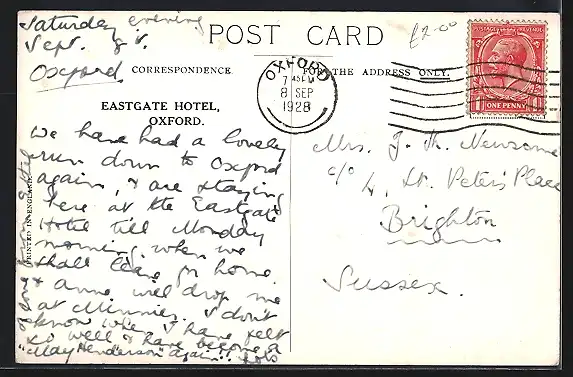 Saturday evening
Sept. 8th.
Oxford.
POST CARD
£2.00
CORRESPONDENCE.
FOR THE ADDRESS ONLY.
EASTGATE HOTEL,
OXFORD.
OXFORD
8 SEP
1928
POSTAGE REVENUE
ONE PENNY
We have had a lovely
run down to Oxford
again, & are staying
here at the Eastgate
Hotel till Monday
morning, when we
shall leave for home.
& Anne will drop me
at Minnie's. I don't
know when I have felt
so well & have become a
"May Henderson" again.
PRINTED IN ENGLAND
Mrs. J. H. Newsome
c/o 4, St. Peter's Place
Brighton
Sussex.